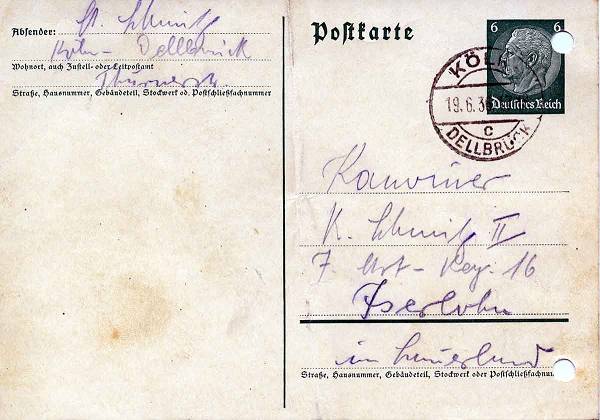 Absender: St. Schmitz
Köln-Dellbrück
Wohnort, auch Zustell- oder Leitpostamt
Thurnerstr.
Straße, Hausnummer, Gebäudeteil, Stockwerk od. Postschließfachnummer
Postkarte
6 6
Deutsches Reich
KÖLN
19.6.3
c
DELLBRÜCK
Kanonier
K. Schmitz II
7. Art-Reg. 16
Iserlohn
im Sauerland
Straße, Hausnummer, Gebäudeteil, Stockwerk oder Postschließfachnum